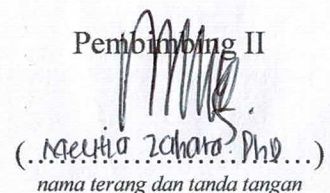 Pembimbing II
(Meutia Zahara PhD)
nama terang dan tanda tangan